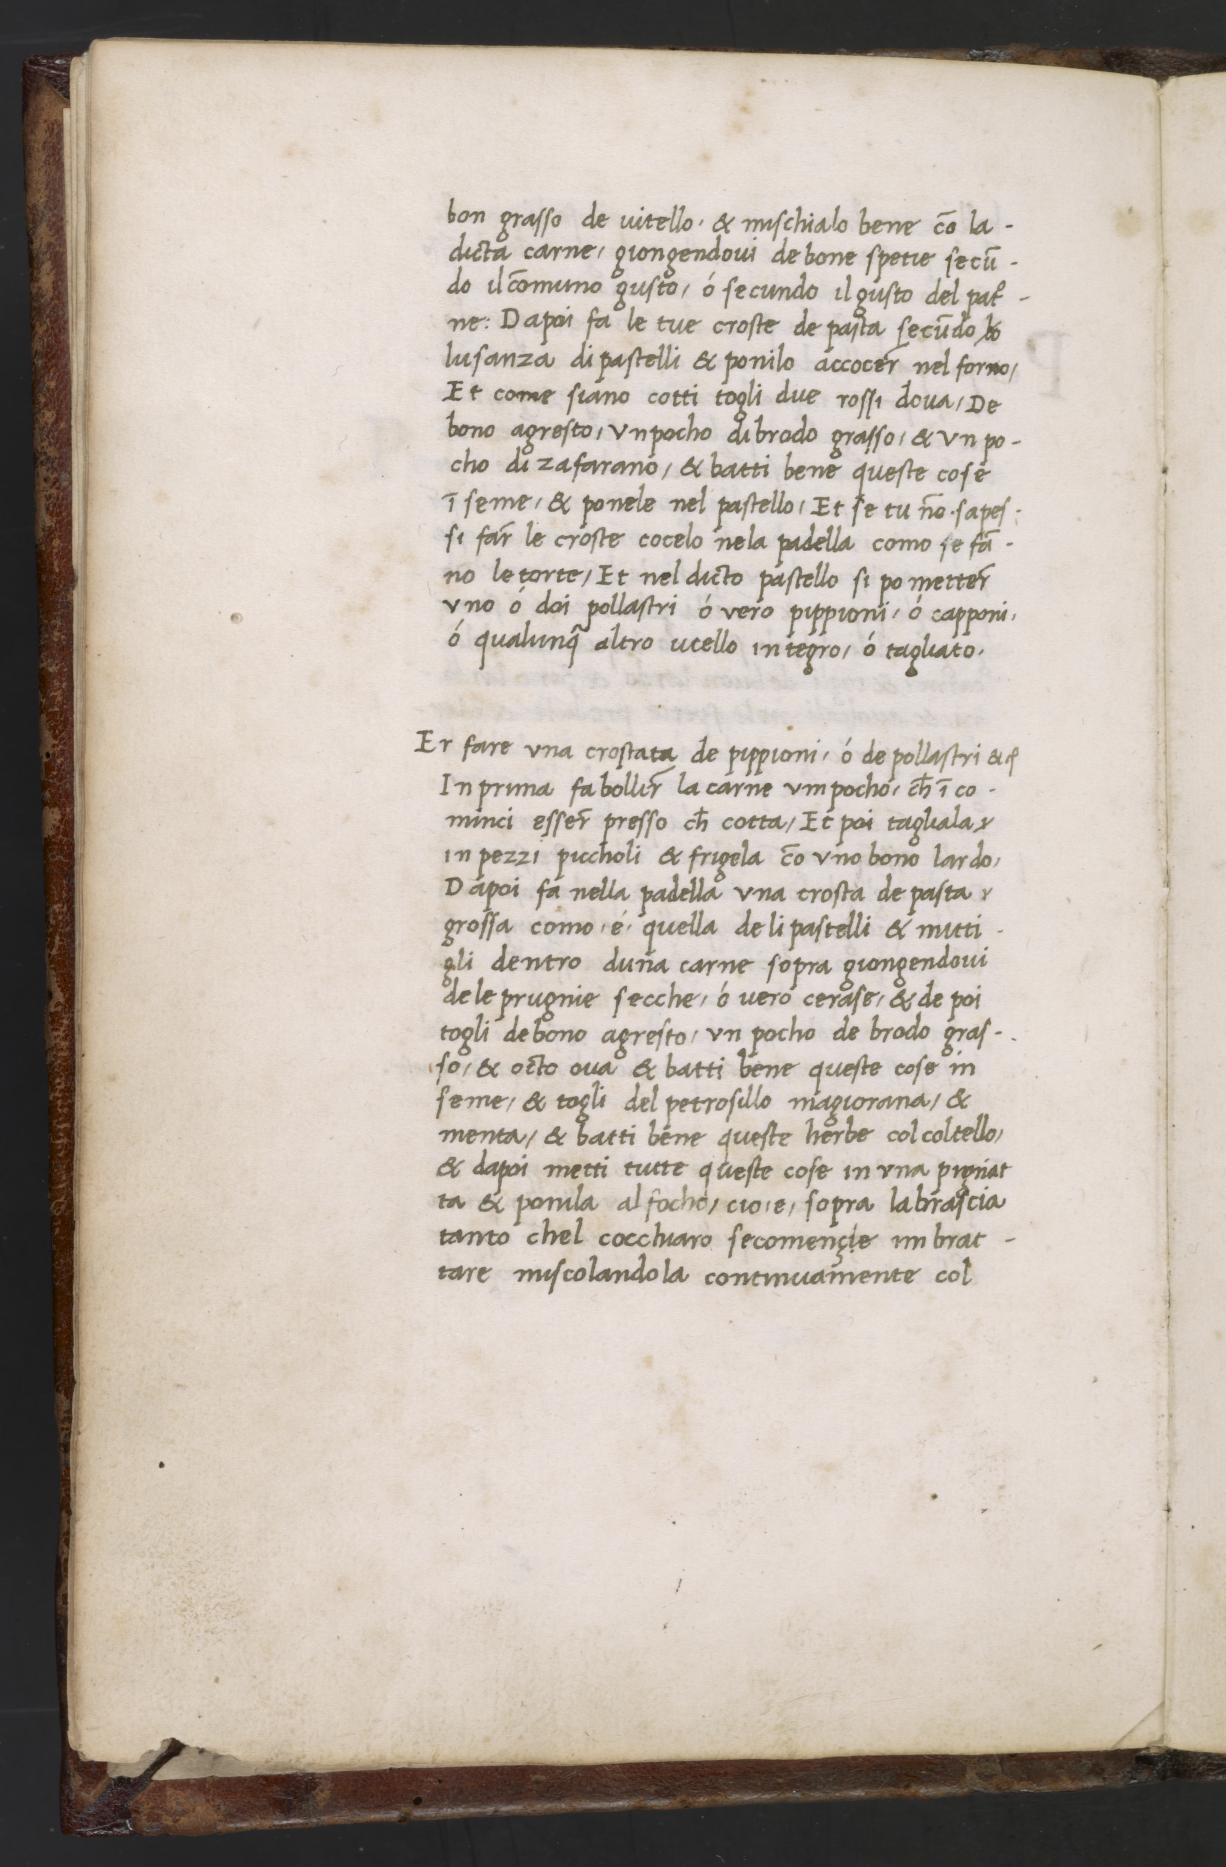 bon grasso de uitello· & mischialo bene cõ la -
dicta carne, giongendoui de bone spetie secũ -
do il cõmuno gusto, ó secundo il gusto del pat̃ -
ne: Dapoi fa le tue croste de pasta secũdo
lusanza di pastelli & ponilo accocer̃ nel forno,
Et come siano cotti togli due rossi doua, De
bono agresto, vn pocho di brodo grasso, & vn po -
cho di zafarano, & batti bene queste cose
ĩ seme, & ponele nel pastello, Et se tu nõ· sapes -
si far̃ le croste cocelo nela padella como se fã -
no le torte, Et nel dicto pastello si po metter̃
vno ó doi pollastri ó vero pippioni, ó capponi,
ó qualunq̃ altro ucello integro, ó tagliato·
Er fare vna crostata de pippioni, ó de pollastri &
In prima fa bollir̃ la carne vm pocho, ch̃ ĩ co -
minci esser̃ presso ch̃ cotta, Et poi tagliala
in pezzi piccholi & frigela cõ vno bono lardo,
Dapoi fa nella padella vna crosta de pasta
grossa como ·é· quella de li pastelli & mitti -
gli dentro duña carne sopra giongendoui
de le prugnie secche, ó uero cerase, & de poi
togli de bono agresto, vn pocho de brodo gras -
so, & octo oua & batti bene queste cose in
seme, & togli del petrosillo magiorana, &
menta, & batti bene queste herbe col coltello,
& dapoi metti tutte queste cose in vna pigniat
ta & ponila al focho, cio ·e, sopra la brascia
tanto chel cocchiaro se comencie imbrat -
tare miscolandola continuamente col